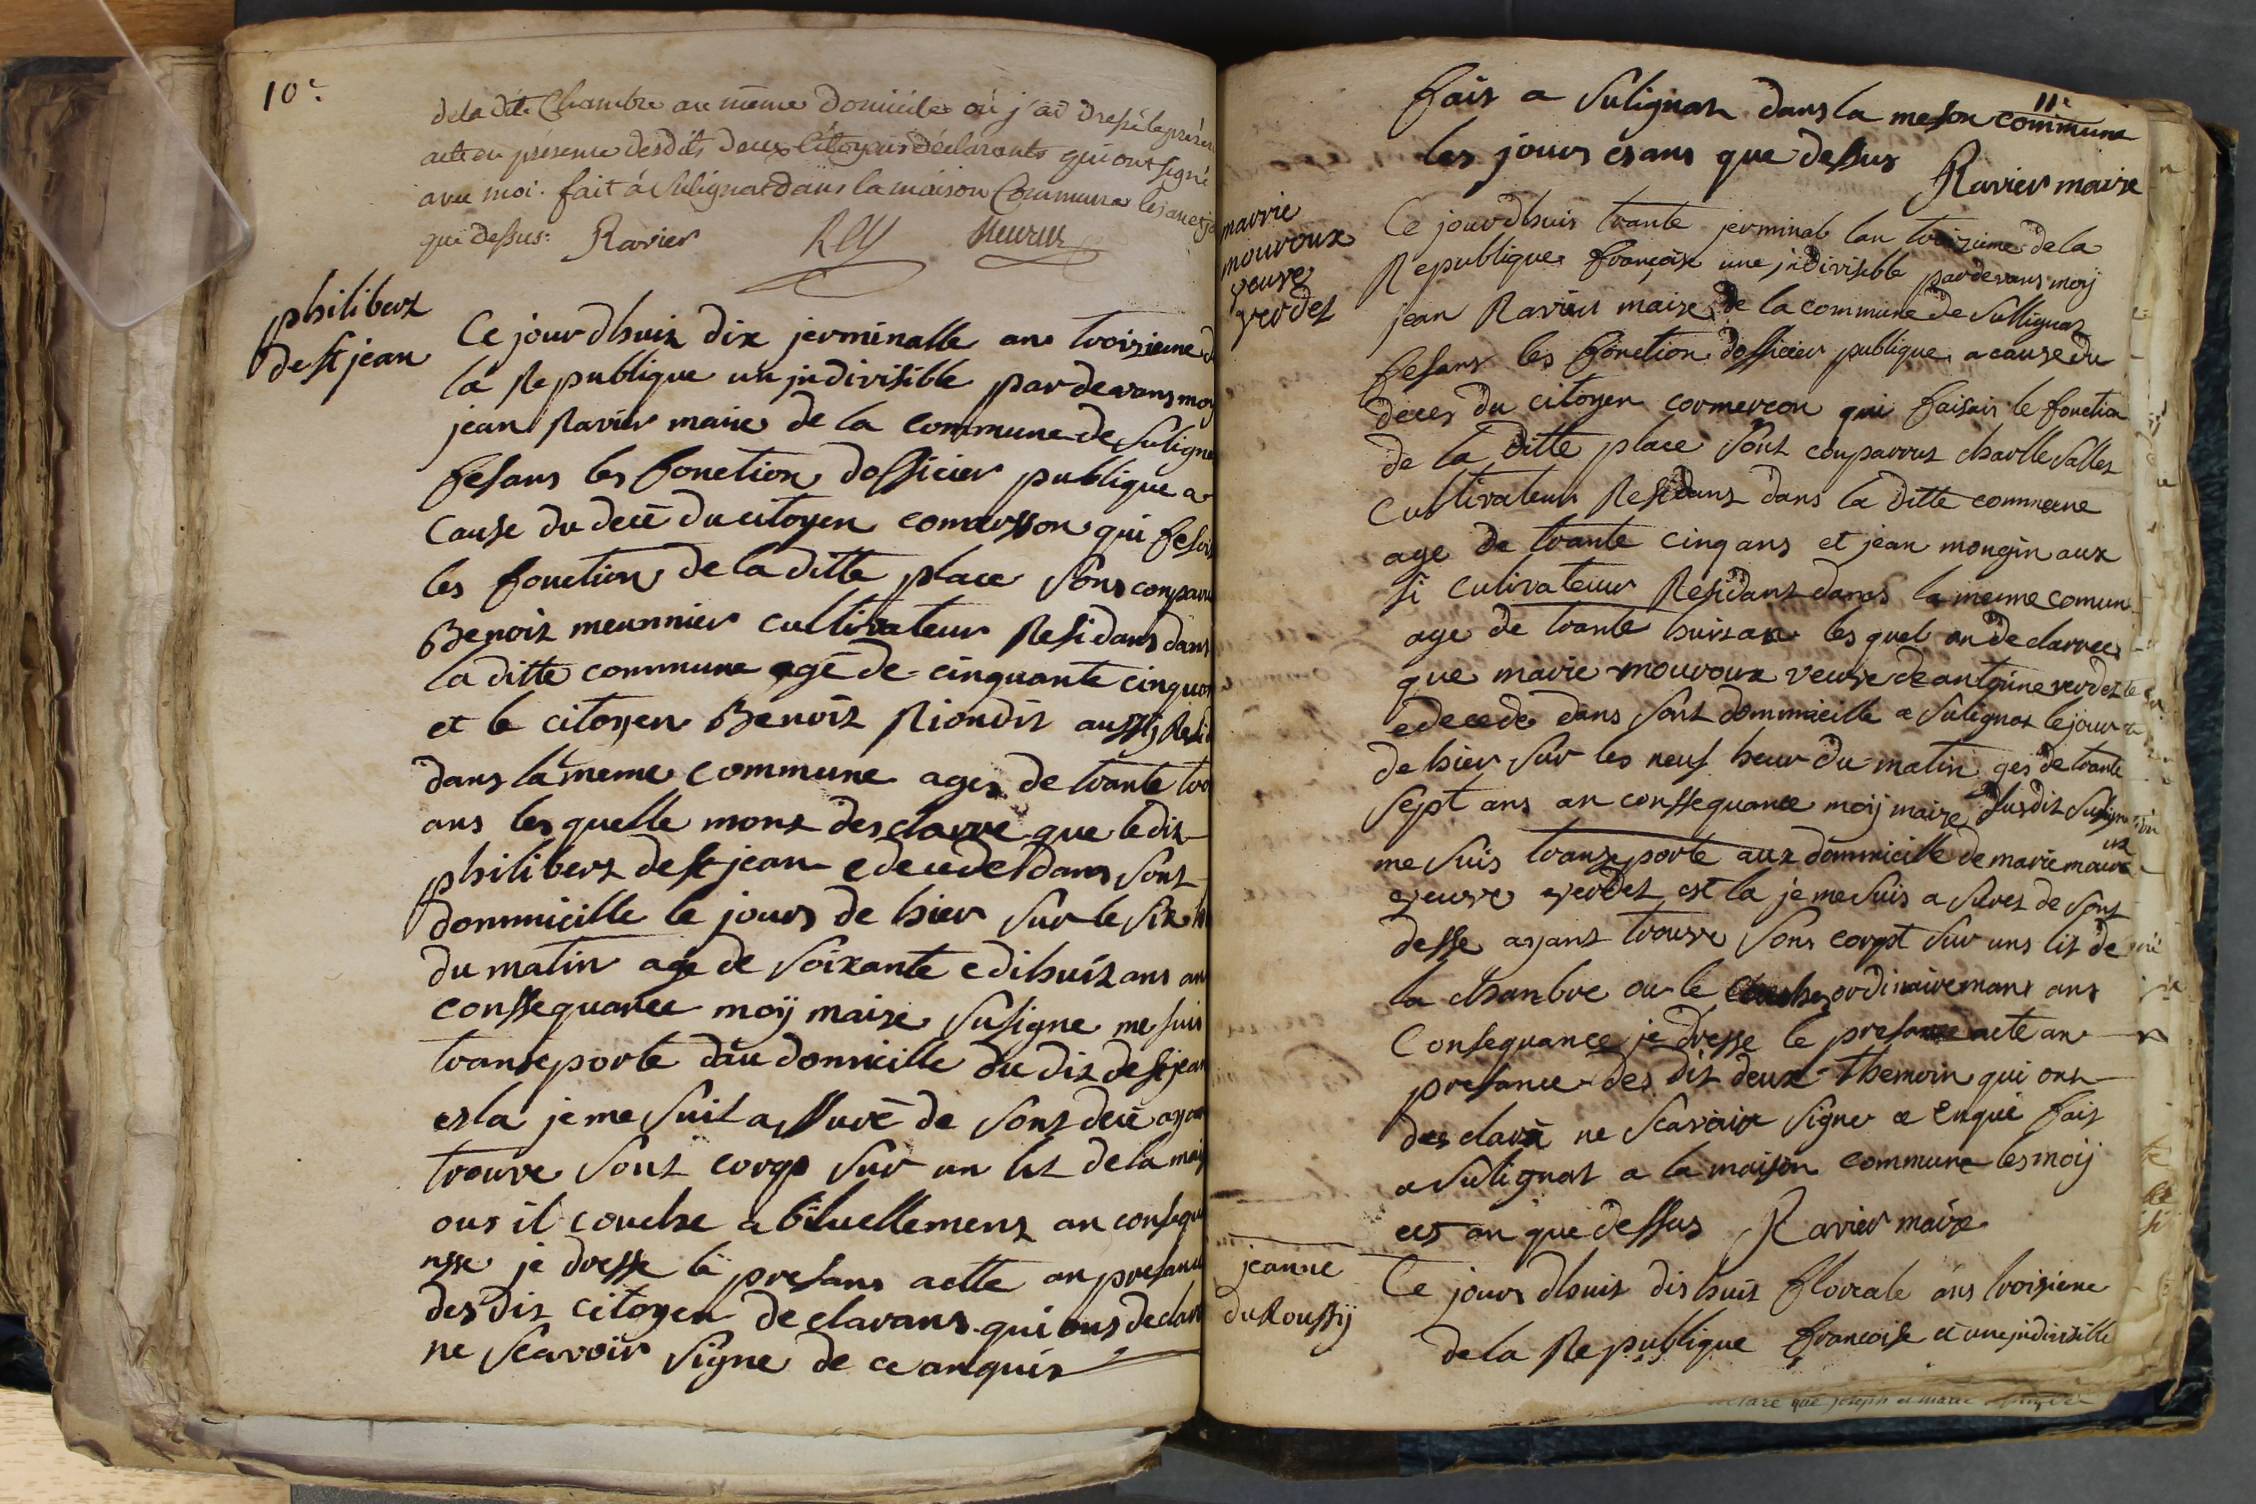 10e
dela dite Chambre au même Domicile où j'ai Dressé le présen
acte en présence desdits deux Citoyens déclarants qui ont signé
avec moi. fait à Sulignat dans la maison Commune les an et jo
que dessus. Ravier Rey Meunier
philibert
de st jean
Ce jourdhuit dix jerminalle an troizieme d
la Republique un jndivisible pardevans moy
jean Ravier maire de la commune de Suligna
fesans les fonction dofficier publique a
Cause du decé du citoyen comersson qui fesoit
les fonction de la ditte place sons conparu
Benoit meunnier cultivateur Residans dans
la ditte commune agé de cinquante cinq an
et le citoyen Benoit Riondit aussij Resid
dans la meme commune ages de trante troi
ans les quelle mont desclarre que le dit
philibert de st jean edecede dans sont
dommicille le jours de hier sur le six h
du matin age de soixante edihuit ans an
conssequance moÿ maire susigne me suis
transeporte dau domicille du dit de st jean
et la je me suit assuré de sont decé ayan
trouve sont corps sur un lit de la mai
ous il couche abituellement an consequ
nsse je dresse le presans actte an presance
des dit citoyen declarans qui ons declar
ne scavoir signe de ce anquis
11e
fait a Sulignat dans la meson commune
les jours et ans que dessus
Ravier maire
marrie
mouroux
veuve
verdet
Ce jourdhuis trante jerminal lan troizieme de la
Republique françoise une jndivisible pardevans moy
jean Ravier maire de la commune de Sullignat
fesans les fonction dofficier publique a cause du
deces du citoyen cormercon qui faisait le fonction
de la ditte place sont conparrut charlle sallet
cultivateur Residant dans la ditte commune
age de trante cinq ans et jean mongin aux
si cultivateur Residant dans la meme comun
age de trante huit an les quel on declarree
que marie mouroux veuve de antoine verdet
edecede dans sont dommicille a sulignat le jour
de hier sur les neuf heur du matin ges de trante
sept ans an conssequance moij maire susdit
me suis transeporte aux dommicille de marie mouroux
veuve verdet est la je me suis a sures de sont
desse ayant trouve sons corpt sur uns lit de
la chanbre ou le couche ordinairemant ans
Consequance je dresse le presance acte an
presance des dit deux themoin qui ont
des clarà ne scavoir signe ce enquie fait
a sulignat a la maison commune les moij
ees an que dessus Ravier maire
jeanne
du Roussij
Ce jours dhuit dis huit floreale ans troisieme
de la Republique francoise et une jndivisille